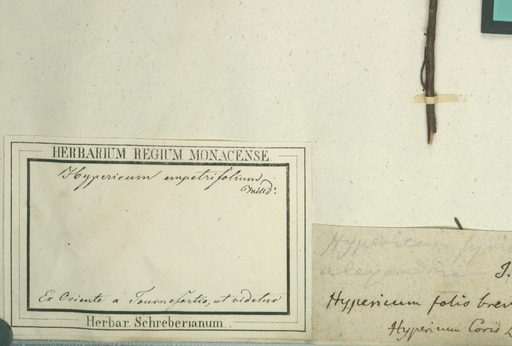 HERBARIUM REGIUM MONACENSE
Hypericum empetrifolium
Willd:
Ex Oriente a Tournefortio, ut videtur
Herbar. Schreberianum.
Hypericum
J.
Hypericum folio brev
Hypericum Coris L